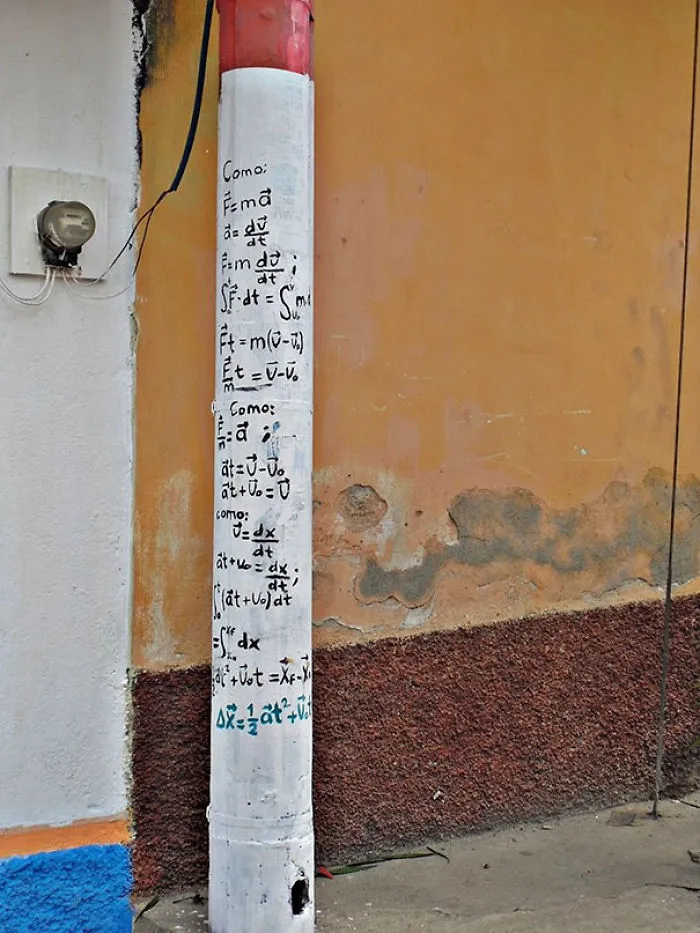 Como:
F⃗=ma⃗
a⃗=dv⃗/dt
F=m dv⃗/dt ;
∫₀ᵗF⃗·dt = ∫ᵥ₀ᵛ m
F⃗t = m(v⃗-v⃗₀)
F⃗/m t = v⃗-v⃗₀
Como:
F⃗/m=a⃗ ;
a⃗t=v⃗-v⃗₀
a⃗t+v⃗₀=v⃗
como:
v⃗=dx/dt
a⃗t+v₀=dx/dt;
∫₀ᵗ(a⃗t+v₀)dt
=∫ₓ₀ˣᶠ dx
½at²+v⃗₀t =x⃗F-x⃗₀
Δx⃗=½a⃗t²+v⃗₀t